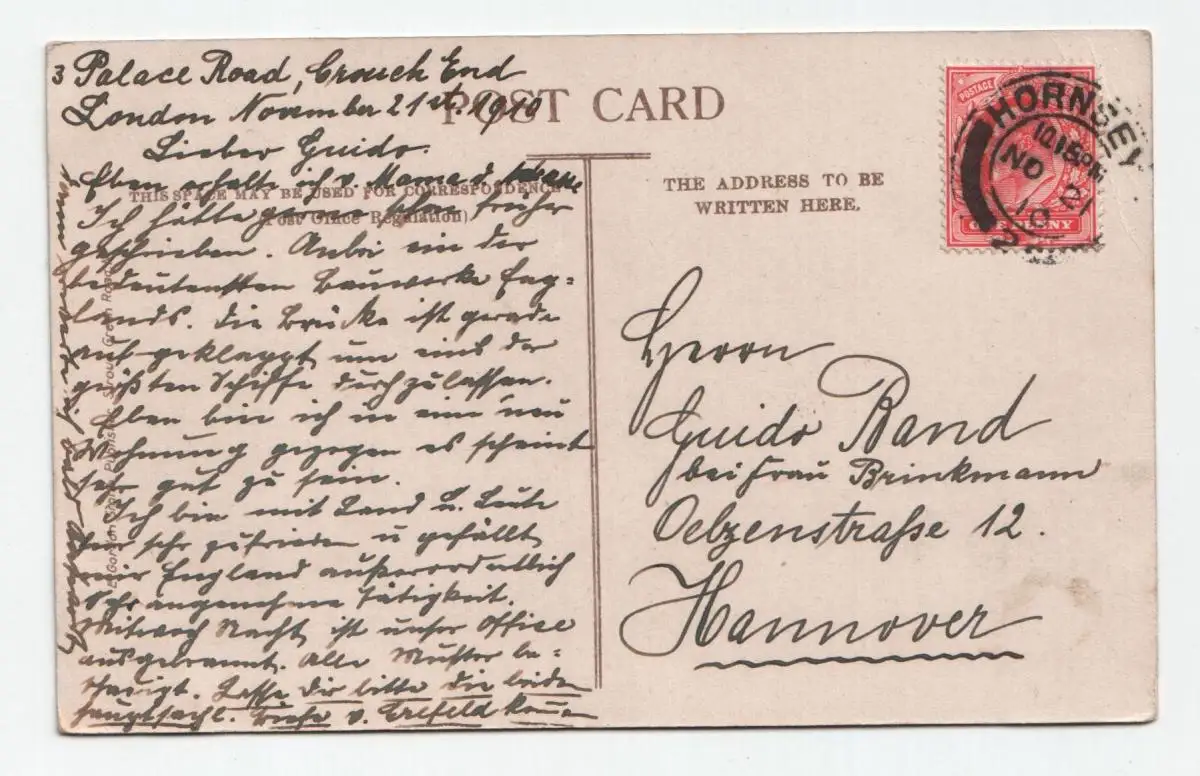 3 Palace Road, Crouch End
London November 21st. 1910
Lieber Guido.
Eben erhalte ich v. Mama d.
Ich hätte schon früher
geschrieben. Anbei ein der
bedeutensten Bauwerke Eng=
lands. Die Brücke ist gerade
aufgeklappt um eins der
größten Schiffe durchzulassen.
Eben bin ich in eine neu
Wohnung gezogen es scheint
sehr gut zu sein.
Ich bin mit Land u. Leute
sehr zufrieden u gefällt
mir England außerordentlich
Sehr angenehme Tätigkeit.
Mittwoch Nacht ist unser Office
ausgebrannt. Alle Muster be=
schädigt. Lasse Dir bitte die beiden
hauptsächl. Briefe v. Crefeld
POST CARD
THIS SPACE MAY BE USED FOR CORRESPONDENCE
(Post Office Regulation)
THE ADDRESS TO BE
WRITTEN HERE.
POSTAGE
ONE PENNY
HORNSEY
10.15 PM
NO 21
10
Herrn
Guido Rand
bei Frau Brinkmann
Oelzenstraße 12.
Hannover